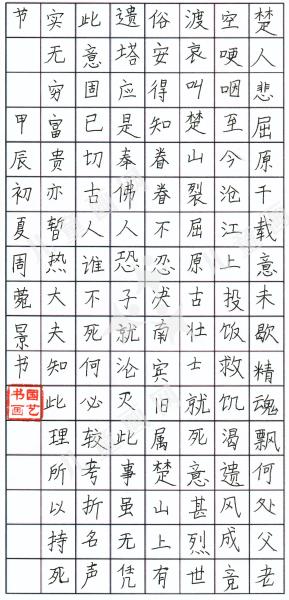 楚人悲屈原千载意未歇精魂飘何处父老
空哽咽至今沧江上投饭救饥渴遗风成竞
渡哀叫楚山裂屈原古壮士就死意甚烈世
俗安得知眷眷不忍决南宾旧属楚山上有
遗塔应是奉佛人恐子就沦灭此事虽无凭
此意固已切古人谁不死何必较考折名声
实无穷富贵亦暂热大夫知此理所以持死
节 甲辰初夏周景书
国艺书画